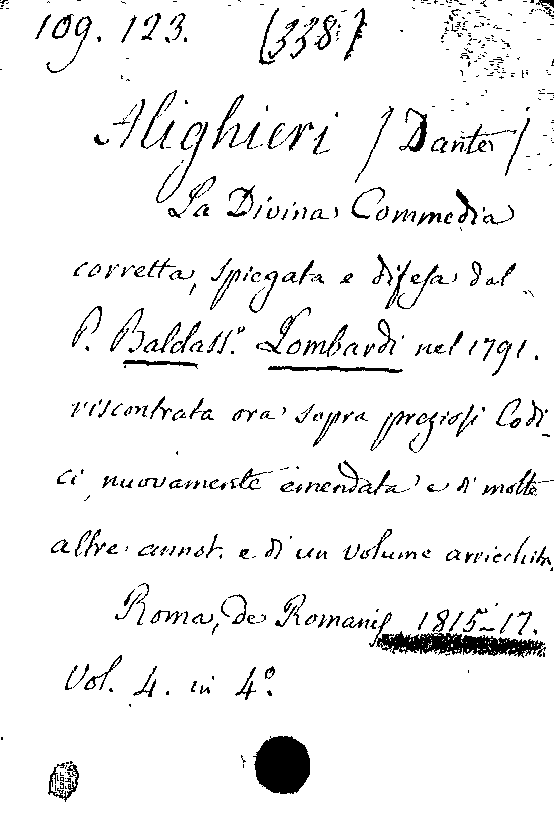 109. 123. (338.)
Alighieri (Dante)
La Divina Commedia
corretta, spiegata e difesa dal
P. Baldass.º Lombardi nel 1791.
riscontrata ora sopra preziosi Codi-
ci, nuovamente emendata e di molte
altre annot. e di un volume arricchita,
Roma, de Romanis 1815-17.
Vol. 4. in 4º.